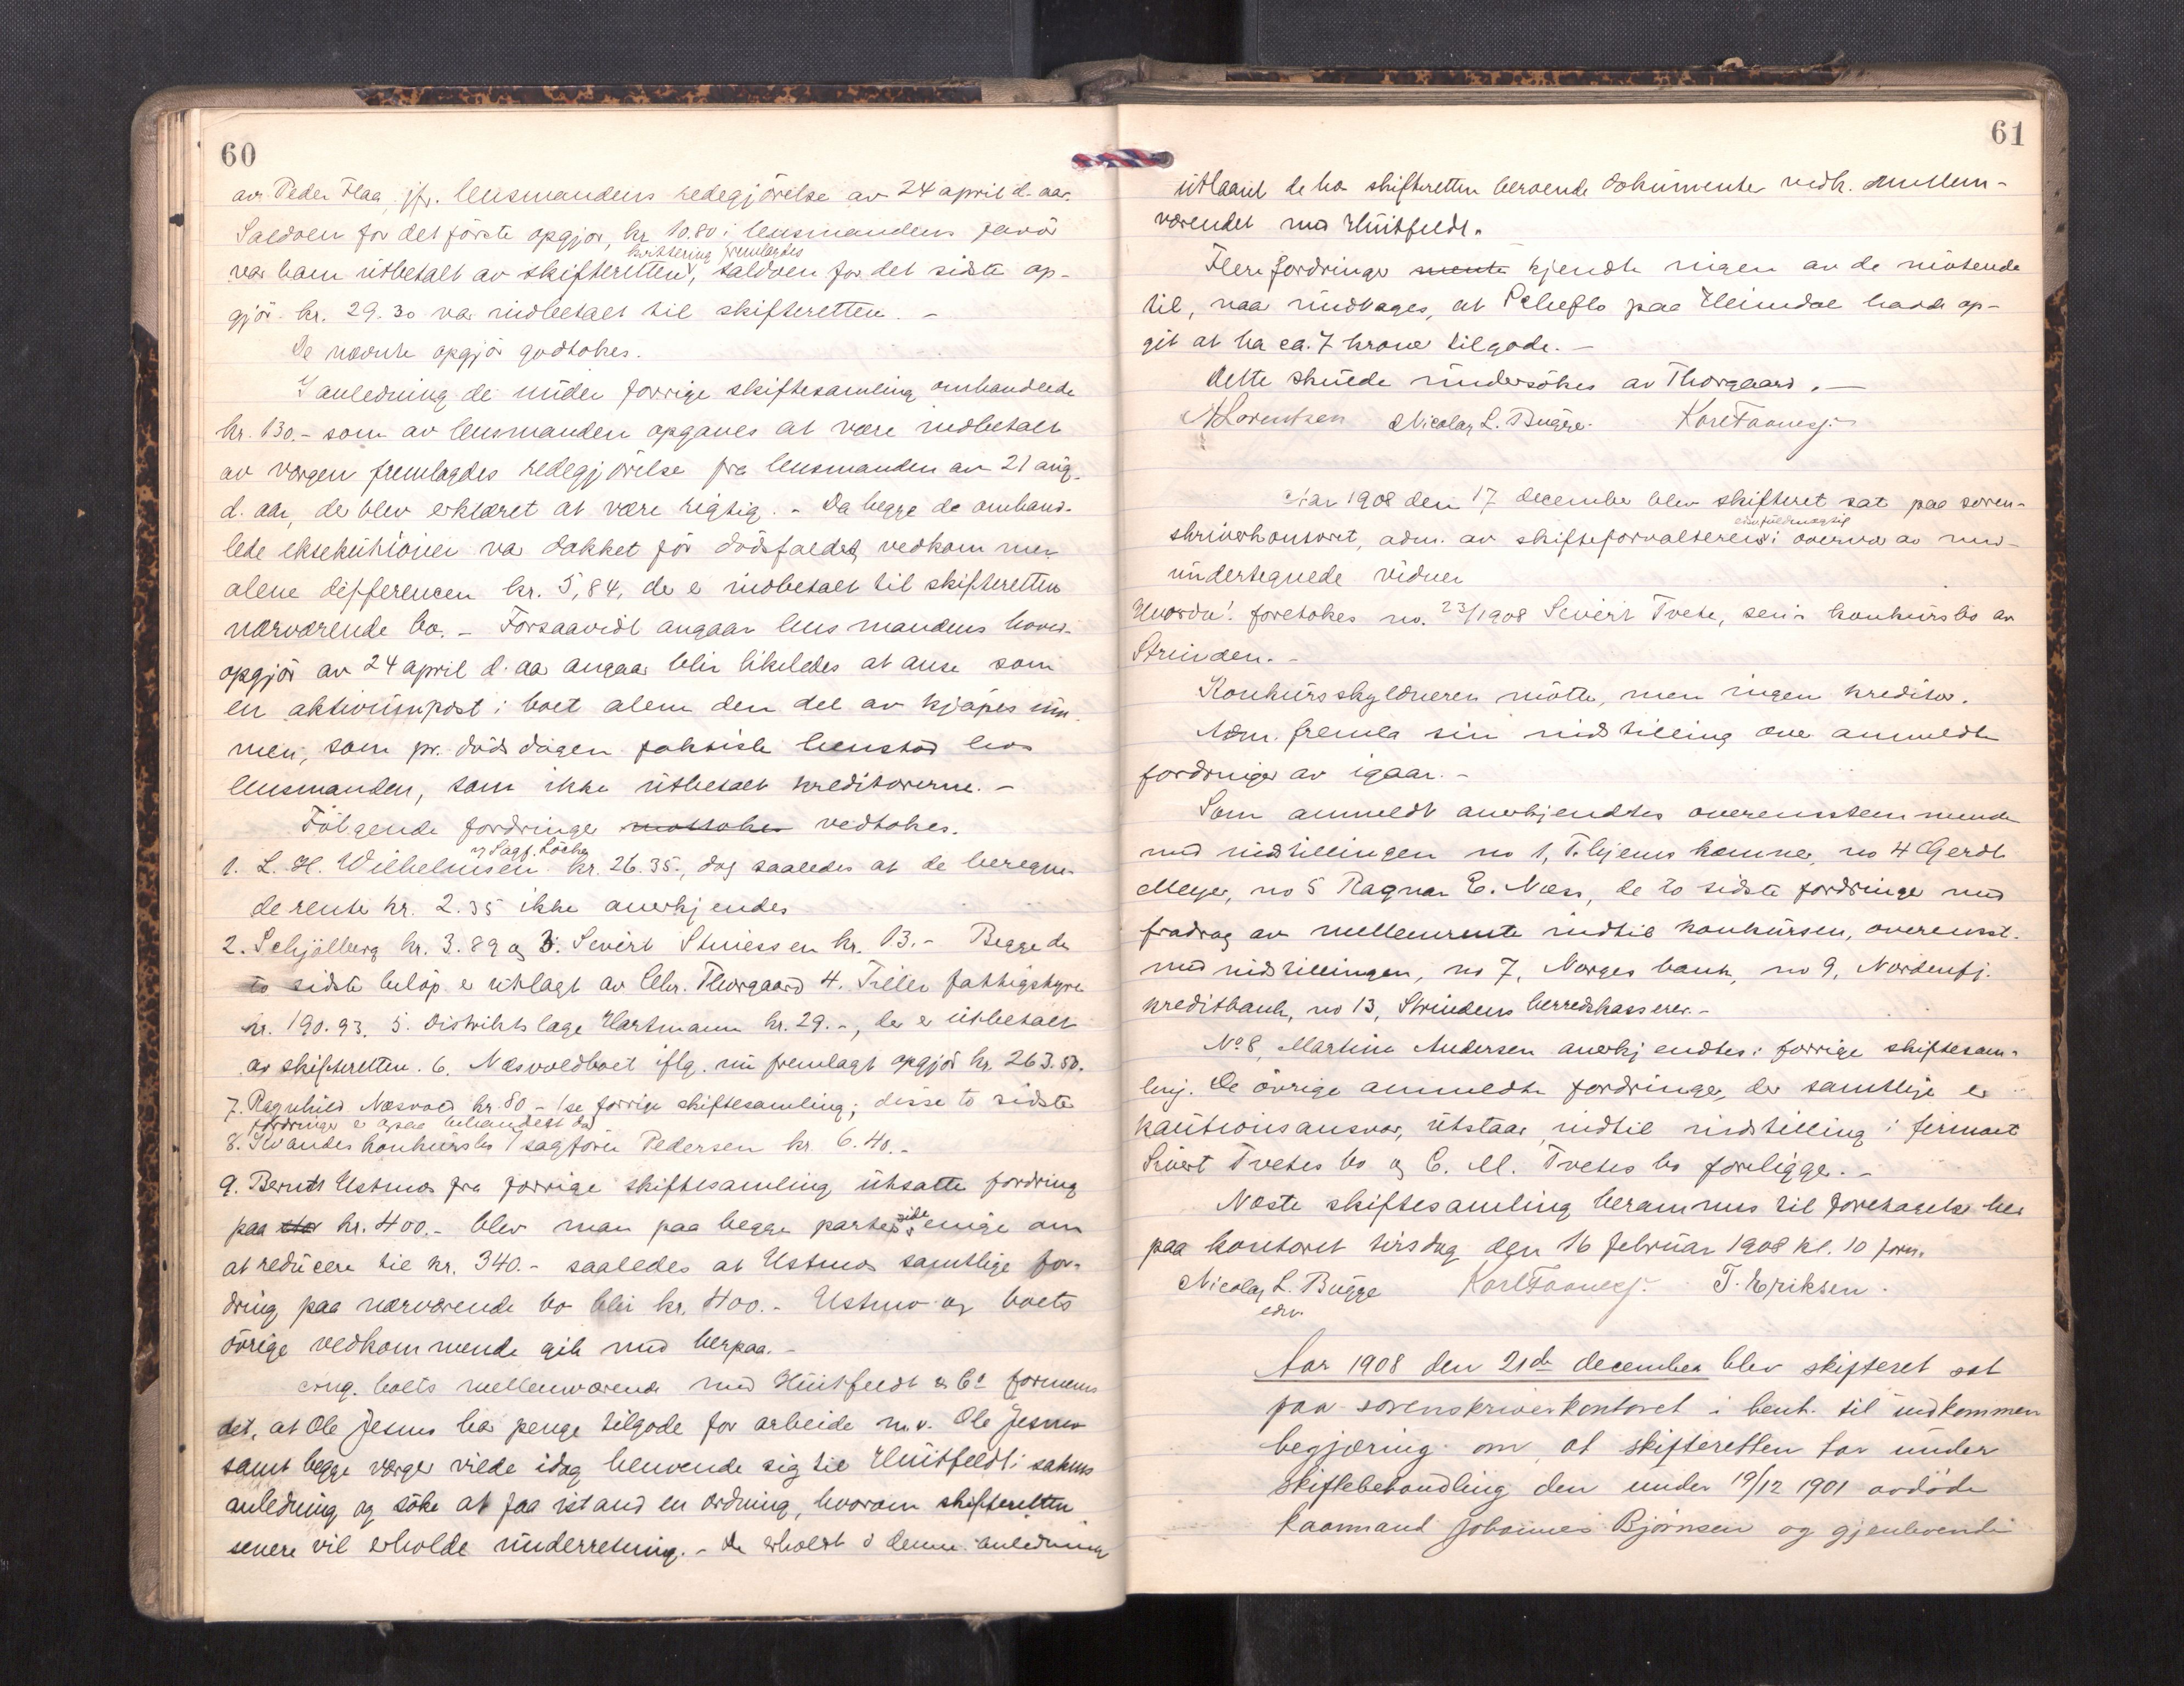 60
av Peder Flaa, jfr. lensmandens redegjörelse av 24 april d. aar.
Saldoen for det förste opgjör, kr. 10.80 i lensmandens favör
kvittering fremlagdes
var ham utbetalt av skifteretten, saldoen for det sidste op-
gjör kr. 29.30 var indbetalt til skifteretten. -
De nævnte opgjör godtokes.
I anledning de under forrige skiftesamling omhandlede
kr. 130.- som av lensmanden opgaves at være indbetalt
av værgen fremlagdes redegjörelse fra lensmanden av 21 aug.
d. aar, der blev erklæret at være rigtig. - Da begge de omhand-
lede eksekutioner var dækket för dödsfaldet, vedkommer
alene differencen kr. 5,84, der er indbetalt til skifteretten
nærværende bo. - Forsaavidt angaar lensmandens hoved-
opgjör av 24 april d. aar angaar blir likeledes at anse som
en aktivumpost i boet alene den del av kjöpesum-
men, som pr. dödsdagen faktisk henstod hos
lensmanden, som ikke utbetalt kreditorerne. -
Fölgende fordringer mottokes vedtokes.
v/ Sagf. Löchen
1. L. H. Wilhelmsen kr. 26.35, dog saaledes at de beregne-
de rente kr. 2.35 ikke anerkjendes
2. Schjölberg kr. 3.89 og 3. Sivert Stuessen kr. 13.- Begge de
to sidste belöp er utlagt av Chr. Thorgaard 4. Tiller fattigstyre
kr. 190.93. 5. Distriktslæge Hartmann kr. 29.-, der er utbetalt
av skifteretten. 6. Næsvoldboet iflg. nu fremlagt opgjör kr. 263.50.
7. Ragnhild Næsvold kr. 80.- (se forrige skiftesamling; disse to sidste
fordringer er ogsaa behandlet da)
8. Ivandes konkursbo / sagförer Pedersen kr. 6.40.-
9. Bernts Ustmos fra forrige skiftesamling utsatte fordring
paa kr. 400.- blev man paa begge parters side enige om
at reducere til kr. 340.- saaledes at Ustmos samtlige for-
dring paa nærværende bo blir kr. 400.- Ustmo og boets
övrige vedkommende gik med herpaa. -
Ang. boets mellemværende med Huitfeldt & Co formenes
det, at Ole Jesmo har penge tilgode for arbeide m.v. Ole Jesmo
samt begge værger vilde idag henvende sig til Huitfeldt i sakens
anledning og söke at faa istand en ordning, hvorom skifteretten
senere vil erholde underretning. - De erholdt i denne anledning
61
utlaant de hos skifteretten beroende dokumenter vedk. mellem-
værendet med Huitfeldt.
Flere fordringer mente kjendte ingen av de mötende
til, naar undtages, at Scheflo paa Heimdal havde op-
git at ha ca. 7 kroner tilgode. -
Dette skulde undersökes av Thorgaard. -
A Lorentzen Nicolay L. Bugge. Karl Faanes jr.
Aar 1908 den 17 december blev skifteret sat paa soren-
edsv. fuldmægtig
skriverkontoret, adm. av skifteforvalterens i overvær av med-
undertegnede vidner
Hvorda! foretokes no. 23/1908 Sivert Tvete, sen's konkursbo av
Strinden. -
Konkursskyldneren mötte, men ingen kreditor.
Adm. fremla sin indstilling over anmeldte
fordringer av igaar. -
Som anmeldt anerkjendtes overensstemmende
med indstillingen no 1, T.hjems kæmner, no 4 Gerdt
Meyer, no 5 Ragnar E. Næss, de to sidste fordringer med
fradrag av mellemrente indtil konkursen, overensst.
med indstillingen, no 7, Norges bank, no 9, Nordenfj.
kreditbank, no 13, Strindens herredskasserer. -
No 8, Martin Andersen anerkjendtes i forrige skiftesam-
ling. De övrige anmeldte fordringer, der samtlige er
kautionsansvar, utstaar indtil indstilling i firmaet
Sivert Tvetes bo og C. M. Tvetes bo foreligger. -
Næste skiftesamling berammes til foretagelse her
paa kontoret tirsdag den 16 februar 1908 kl. 10 form.
Nicolay L. Bugge Karl Faanes jr. T. Eriksen.
edsv.
Aar 1908 den 21de december blev skifteret sat
paa sorenskriverkontoret i henh. til indkommen
begjæring om at skifteretten tar under
skiftebehandling den under 19/12 1901 avdöde
kaarmand Johannes Björnsen og gjenlevende